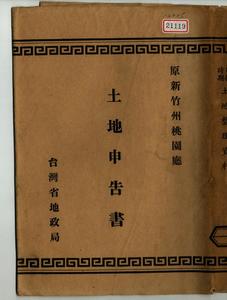 21119
原新竹州桃園廳
土地申告書
台灣省地政局